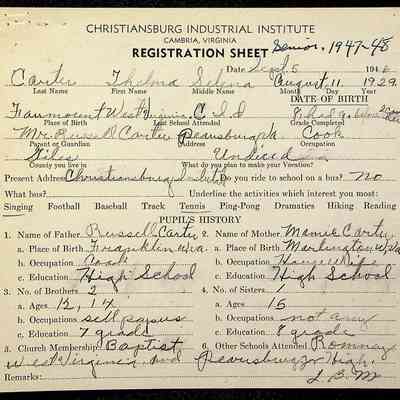 CHRISTIANSBURG INDUSTRIAL INSTITUTE
CAMBRIA, VIRGINIA
REGISTRATION SHEET Senior, 1947-48
Date Sept 5 194
Carter Thelma Selena August 11 1929
Last Name First Name Middle Name Month Day Year
DATE OF BIRTH
Fairmount West Virginia C.I.I
Place of Birth Last School Attended Grade Completed
Mr. Russell Carter Pearisburg Cook
Parent or Guardian Address Occupation
Giles Undecided
County you live in What do you plan to make your Vocation?
Present Address Christiansburg Institute Do you ride to school on a bus? No
What bus? Underline the activities which interest you most:
Singing Football Baseball Track Tennis Ping-Pong Dramatics Hiking Reading
PUPIL'S HISTORY
1. Name of Father Russell Carter 2. Name of Mother Mamie Carter
a. Place of Birth Franklin W.va. a. Place of Birth Marlington W.Va
b. Occupation Cook b. Occupation House Wife
c. Education High School c. Education High School
3. No. of Brothers 2 4. No. of Sisters 1
a. Ages 12, 14 a. Ages 15
b. Occupations sell papers b. Occupations not any
c. Education 7 grade c. Education 8 grade
5. Church Membership: Baptist 6. Other Schools Attended Romney
West Virginia, and Pearisburg High.
Remarks: L. B. M